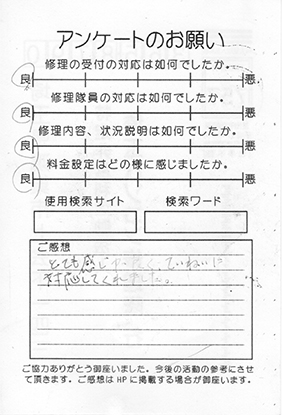 アンケートのお願い
修理の受付の対応は如何でしたか。
良 悪
修理隊員の対応は如何でしたか。
良 悪
修理内容、状況説明は如何でしたか。
良 悪
料金設定はどの様に感じましたか。
良 悪
使用検索サイト 検索ワード
ご感想
とても感じ よく、ていねいに
対応してくれました。
ご協力ありがとう御座いました。今後の活動の参考にさせ
て頂きます。ご感想はHPに掲載する場合が御座います。